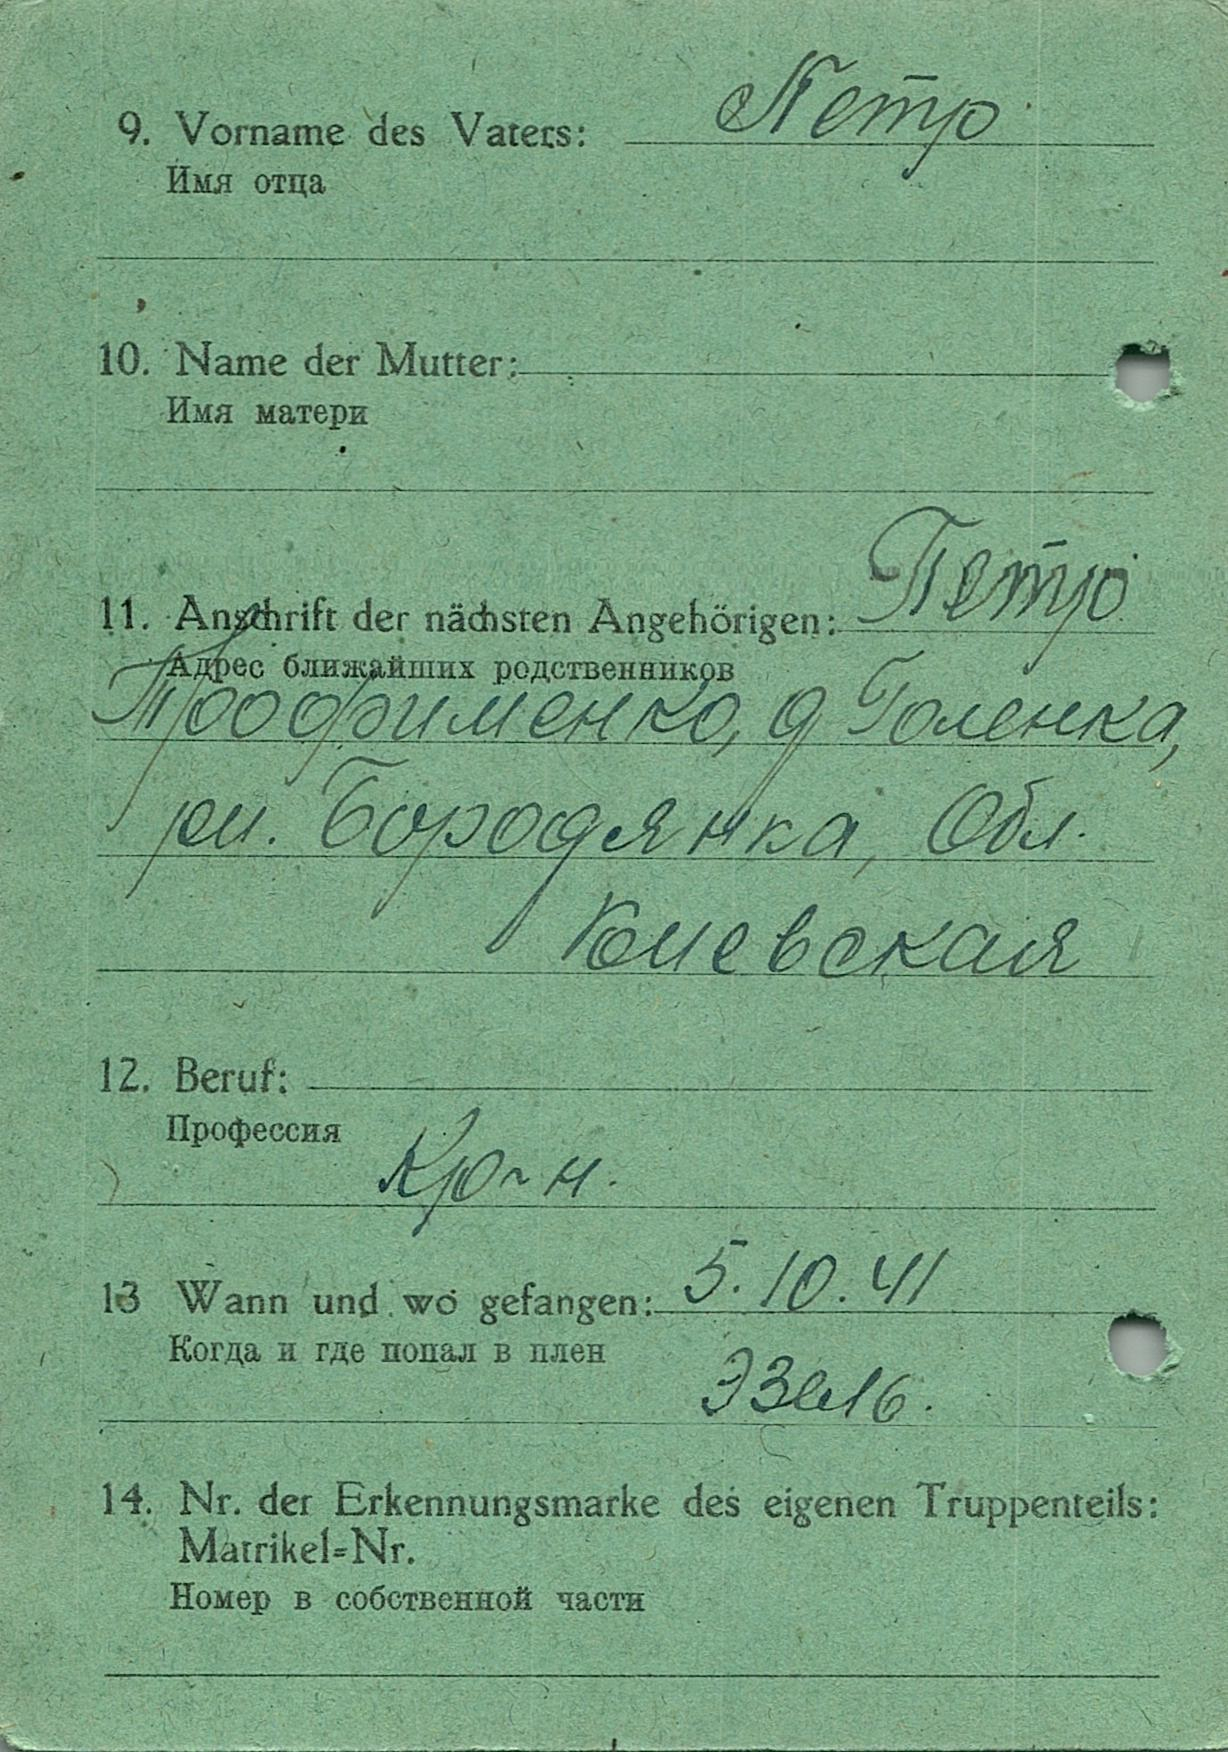 9. Vorname des Vaters: Петро
Имя отца
10. Name der Mutter:
Имя матери
11. Anschrift der nächsten Angehörigen: Петро
Адрес ближайших родственников
Трофименко, д Голенка,
рн. Бородянка, Обл.
Киевская
12. Beruf:
Профессия
Кр-н.
13 Wann und wo gefangen: 5.10.41
Когда и где попал в плен
14. Nr. der Erkennungsmarke des eigenen Truppenteils:
Matrikel=Nr.
Номер в собственной части